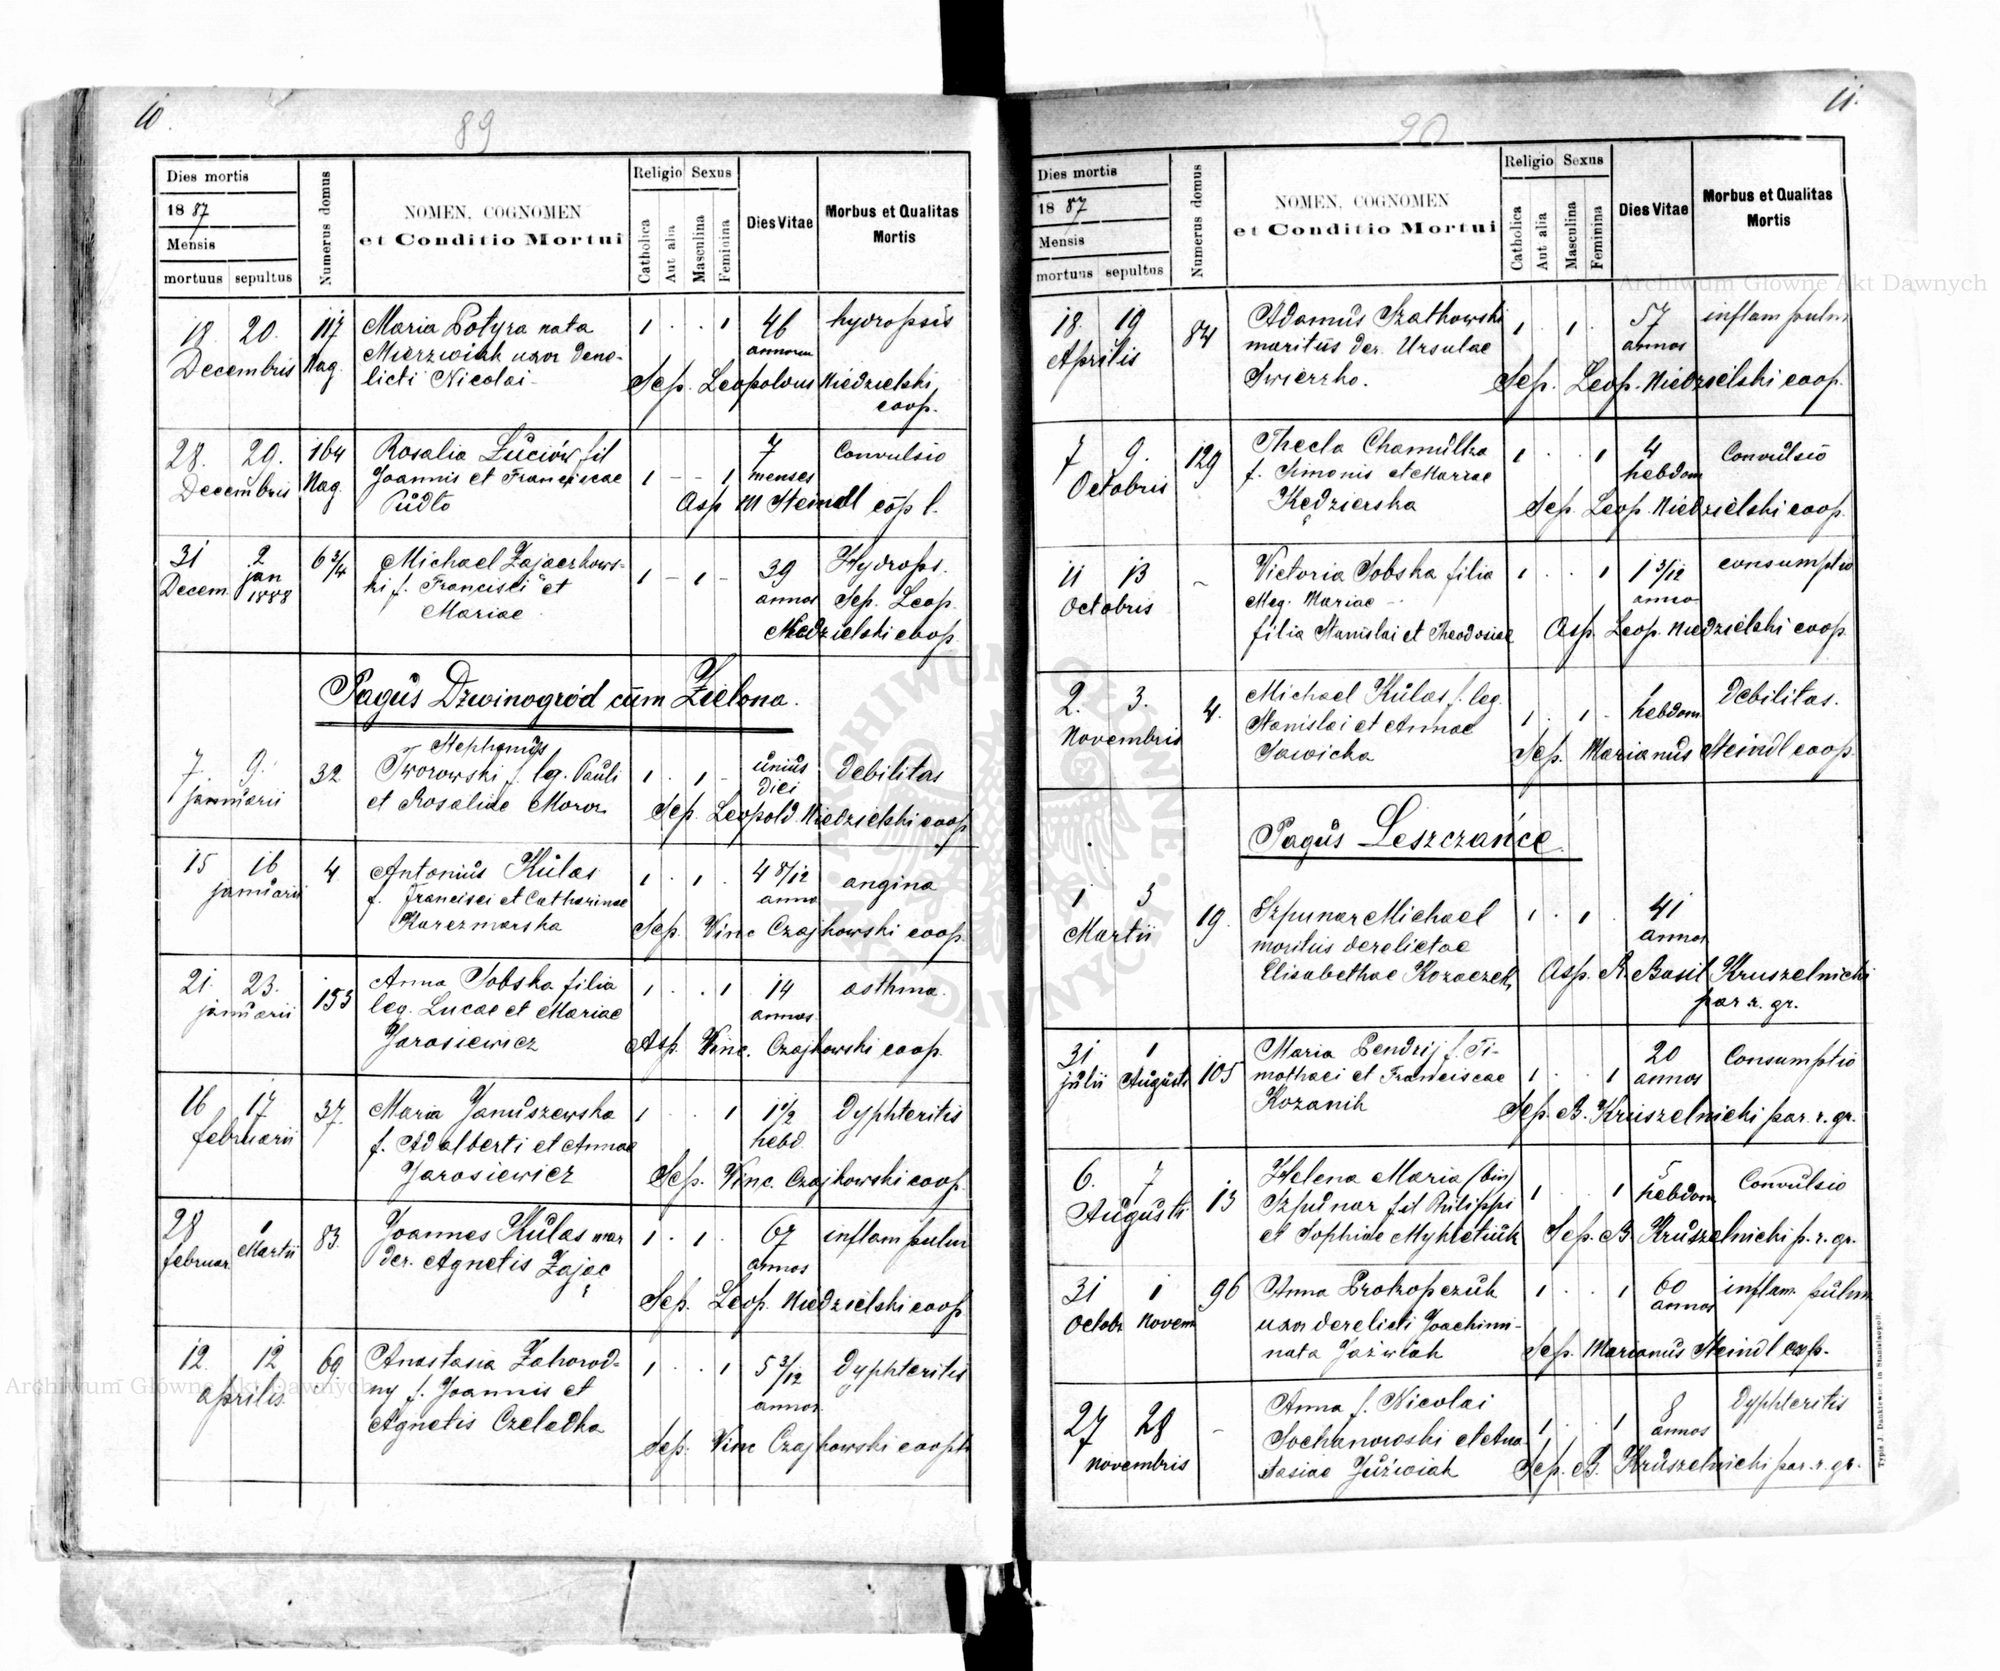 10.
89
Dies mortis
1887
Mensis
mortuus sepultus
Numerus domus
NOMEN, COGNOMEN
et Conditio Mortui
Religio Sexus
Catholica
Aut alia
Masculina
Feminina
Dies Vitae
Morbus et Qualitas
Mortis
18. 20. 117 Maria Potyra nata 1 . . 1 46 hydropsis
Decembris Nag. Mierzwiak uxor dere-
licti Nicolai Sep. Leopoldus Niedzielski
coop.
28. 29. 164 Rosalia Łuciów fil 7 Convulsio
Decembris Nag. Joannis et Franciscae 1 - - 1 menses
Pudło Asp M Steindl coop l.
31 2 6 3/4 Michael Zajączkows- 1 - 1 - 39 Hydrops.
Decem. jan 1888 ki f. Francisci et annos Sep. Leop.
Mariae Niedzielski coop.
Pagus Dzwinogród cum Zielona.
7 9. 32 Stephanus unius
januarii Tworowski f. leg. Pauli 1 . 1 - diei debilitas
et Rosaliae Moroz Sep. Leopold. Niedzielski coop
15 16 4 Antonius Kulas 1 . 1 . 4 8/12 angina
januarii f. Francisci et Catharinae anno
Karczmarska Sep. Vinc Czajkowski coop.
21. 23. 153 Anna Sobska filia 1 . . 1 14 asthma.
januarii leg. Lucae et Mariae annos.
Jarosiewicz Asp. Vinc. Czajkowski coop.
16 17 37. Maria Januszewska 1 . . 1 1 1/2 dyphteritis
februarii f. Adalberti et Annae hebd.
Jarosiewicz Sep. Vinc. Czajkowski coop.
28 1 83. Joannes Kulas mar 1 . 1 . 67 inflam pulm
februar. Martii der. Agnetis Zając annos
Sep. Leop. Niedzielski coop
12. 12 69 Anastasia Zahorod- 1 . . 1 5 3/12 dyphteritis
aprilis. ny f. Joannis et annos
Agnetis Czeladka Sep. Vinc Czajkowski coop
11.
90
Dies mortis
1887
Mensis
mortuus sepultus
Numerus domus
NOMEN, COGNOMEN
et Conditio Mortui
Religio Sexus
Catholica
Aut alia
Masculina
Feminina
Dies Vitae
Morbus et Qualitas
Mortis
18. 19 84 Adamus Szatkowski 1 . 1 . 57 inflam pulm
Aprilis maritus der. Ursulae annos
Swierzko. Sep. Leop. Niedzielski coop.
7 9. 129 Thecla Chamulka 1 . . 1 4 Convulsio
Octobris f. Simonis et Mariae hebdom
Kędzierska Sep. Leop. Niedzielski coop.
11 13 - Victoria Sobska filia 1 . . 1 1 3/12 consumptio
Octobris leg. Mariae anno
filia Stanislai et Theodosiae Asp. Leop. Niedzielski coop.
2. 3. 4. Michael Kulas f. leg. 1 . 1 . 1 debilitas.
Novembris Stanislai et Annae hebdom.
Sawicka Sep. Marianus Steindl coop.
Pagus Leszczańce.
1 3 19. Szpunar Michael 1 . 1 . 41
Martii maritus derelictae annos
Elisabethae Kozaczek Asp. R. Basil Kruszelnicki
par r. gr.
31 1 105 Maria Pendzij f. Ti- 20 Consumptio
julii Augusti mothaei et Franciscae 1 . . 1 annos
Kozanik Sep. B. Kruszelnicki par. r. gr.
6. 7 13 Helena Maria (bin) 1 . . 1 5 Convulsio
Augusti Szpunar fil Philippi hebdom
et Sophiae Mykietiuk Sep. B Kruszelnicki p. r. gr.
31 1 96 Anna Prokopczuk 1 . . 1 60 inflam. pulm
Octobr Novem uxor derelicti Joachimi annos
nata Jaźwiak Sep. Marianus Steindl coop.
27 28 - Anna f. Nicolai 1 . . 1 8 dyphteritis
novembris Sochanowski et Ana- annos
stasiae Jaźwiak Sep. B. Kruszelnicki par. r. gr.
Typis J. Dankiewicz in Stanislaopoli.
Archiwum Główne Akt Dawnych
Archiwum Główne Akt Dawnych
ARCHIWUM GŁÓWNE AKT DAWNYCH